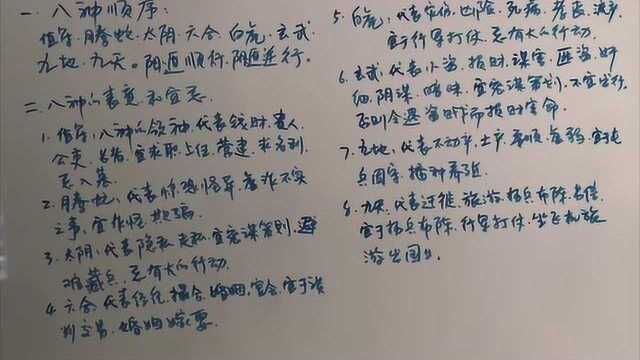 一、八神顺序:
值符、腾蛇、太阴、六合、白虎、玄武
九地、九天。阳遁顺行,阴遁逆行。
二、八神的表意和宜忌
1. 值符,八神的领神,代表钱财、贵人
名誉,宜求职上任、营建、求名利
忌入墓。
2. 腾蛇,代表惊恐怪异、虚诈不实
之事,宜作怪、欺骗。
3. 太阴,代表隐私、走私,宜密谋策划,避
难藏兵,忌有大的行动。
4. 六合,代表经纪、撮合、婚姻、宜于谈
判交易、婚姻嫁娶。
5. 白虎,代表、凶险、死病、孝丧、
宜于行军打仗,忌有大的行动。
6. 玄武,代表小盗、损财、谋害、匪盗、奸
细、阴谋、暧昧,宜密谋策划,不宜出行。
否则会遇盗贼而损财害命。
7. 九地,代表不动产、土产、柔顺、宜于屯
兵固守、播种养殖。
8. 九天,代表迁徙、旅游、扬兵布阵、名誉。
宜于扬兵布阵,行军打仗、坐飞机旅
游出国。